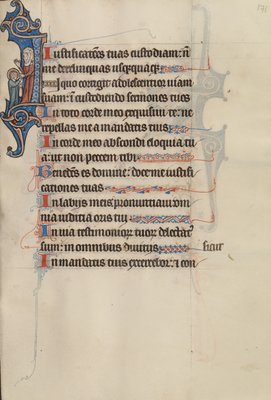 Iustificatões tuas custodiam: ñ
me derelinquas usq;quaq;
In quo corrigit adolescentior uiam
suam: in custodiendo sermones tuos
In toto corde meo exquisiui te: ne
repellas me a mandatis tuis
In corde meo abscondi eloquia tu
a: ut non peccem tibi
Bened̃c̃s es domine: doce me iustifi
cationes tuas
In labijs meis pronuntiaui om
nia iudicia oris tui
In uia testimonioꝝ tuoꝝ delectat᷒
sum: in omnibus diuitijs sicut
In mandatis tuis exercebor: ⁊ con